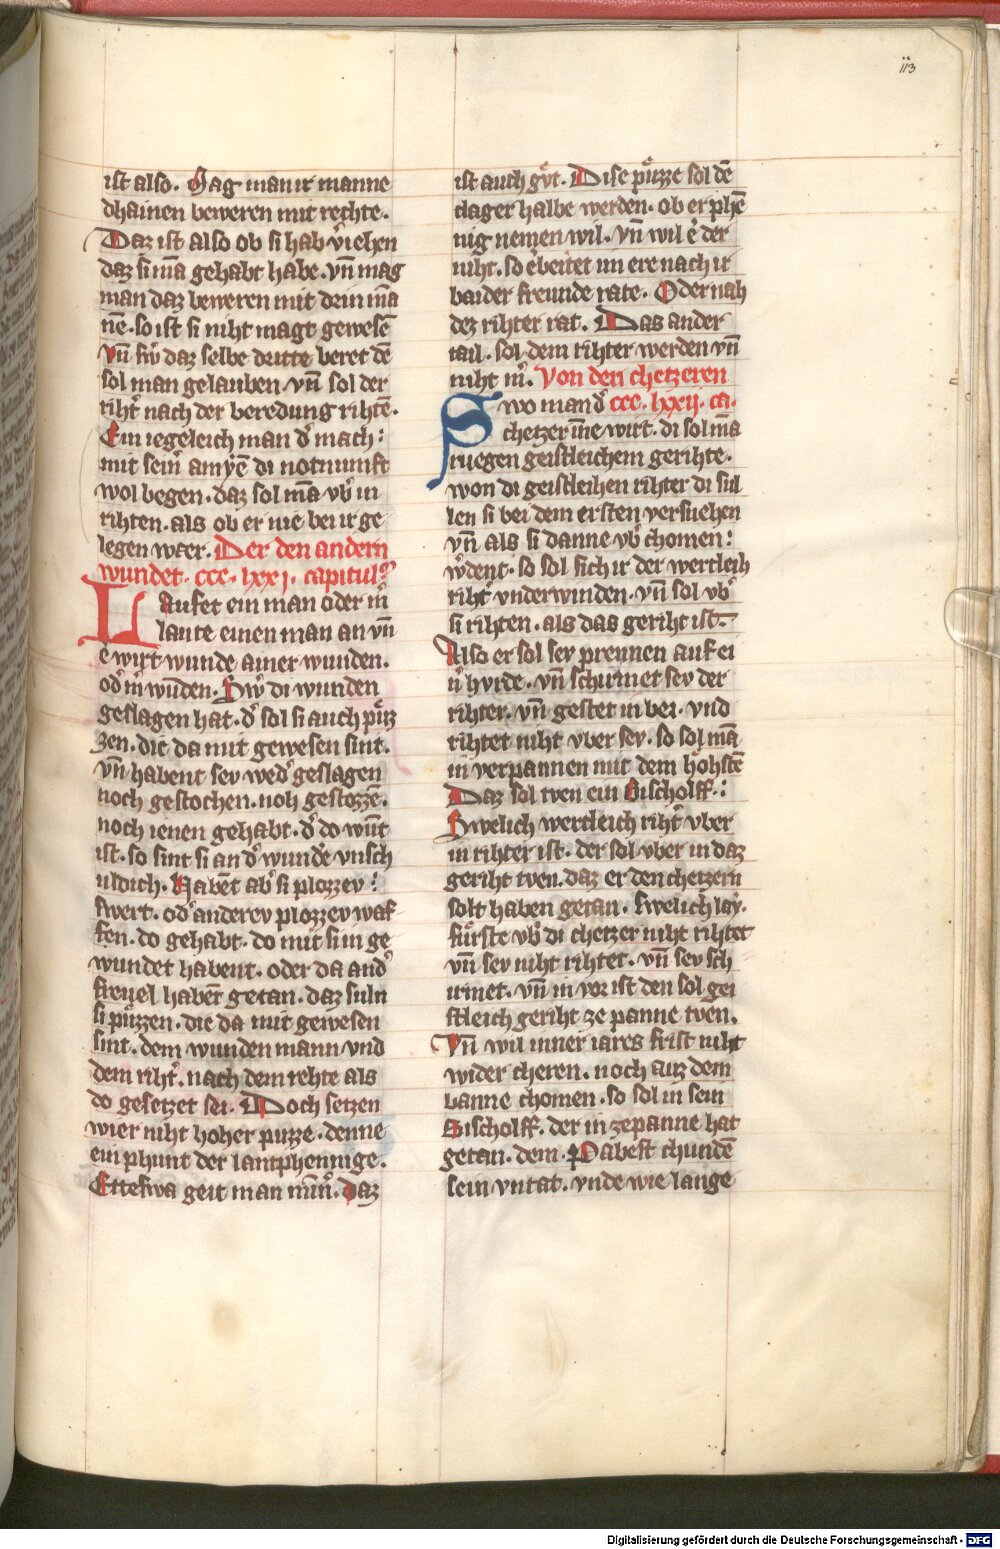 113
ist also. Mag man ir manne
dhainen beweren mit rechte.
Daz ist also ob si hab v̾iehen
daz si mā gehabt habe. vn̄ mag
man daz beweren mit dem mā
ne. so ist si niht magt gewesē
vn̄ swˀ daz selbe dritte beret dē
sol man gelauben. vn̄ sol der
rihtˀ nach der beredung rihtē.
Ein iegeleich man dˀ mach:
mit seinˀ amyē di notnunft
wol begen. daz sol mā vbˀ in
rihten. als ob er nie bei ir ge
legen wer. Der den andern
wundet. ccc. lxxj. capitulˀ
Laufet ein man oder mˀ
laute einen man an vn̄
e wirt wunde ainer wunden.
odˀ mˀ wūden. Swˀ di wunden
geslagen hat. dˀ sol si auch puͤz
zen. die da mit gewesen sint.
vn̄ habent sey wedˀ geslagen
noch gestochen. noh gestozzē.
noch ienen gehabt. dˀ do wūt
ist. so sint si an dˀ wunde vnsch
uldich. Habēt abˀ si plozzev:
swert. odˀ anderev plozzev waf
fen. do gehabt. do mit si in ge
wundet habent. oder da andˀ
freuel habēt getan. daz suln
si puͤzzen. die da mit gewesen
sint. dem wunden mann vnd
dem rihtˀ. nach dem rehte als
do gesetzet sei. Doch setzen
wier niht hoher puzze. denne
ein phunt der lantphennige.
Etteswa geit man minˀ. Daz
ist auch gvͦt. Dise puͤzze sol dē
clager halbe werden. ob er phē
nig nemen wil. vn̄ wil eˀ der
niht. so eˀbeitet im ere nach ir
baider freunde rate. Oder nah
dez rihter rat. Das ander
tail. sol dem rihter werden vn̄
niht mˀ. Von den chetzeren
Swo man dˀ ccc. lxxij. ca.
chetzer īne wirt. di sol mā
ruegen geistleichem gerihte.
won di geistleihen rihter di sul
len si bei dem ersten versuchen
vn̄ als si danne vbˀ chomen:
wˀdent. so sol sich ir der wertleih
rihtˀ vnderwinden. vn̄ sol vbˀ
si rihten. als das geriht ist.
Also er sol sey prennen auf ei
nˀ hvrde. vn̄ schirmet sey der
rihter. vn̄ gestet in bei. vnd
rihtet niht vber sey. so sol mā
in verpannen mit dem hoͤhstē
Daz sol tven ein Bischolff.:
Swelich wertleich rihtˀ vber
in rihter ist. der sol vber in daz
geriht tven. daz er den chetzern
solt haben getan. Swelich lay.
fuͤrste vbˀ di chetzer niht rihtet
vn̄ sey niht rihtet. vn̄ sey sch
irmet. vn̄ in vor ist den sol gei
stleich geriht ze panne tven.
Vn̄ wil inner iares frist niht
wider cheren. noch auz dem
banne chomen. so sol in sein
Bischolff. der in zepanne hat
getan. dem. Pabest chundē
sein vntat. vnde wie lange
Digitalisierung gefördert durch die Deutsche Forschungsgemeinschaft - DFG